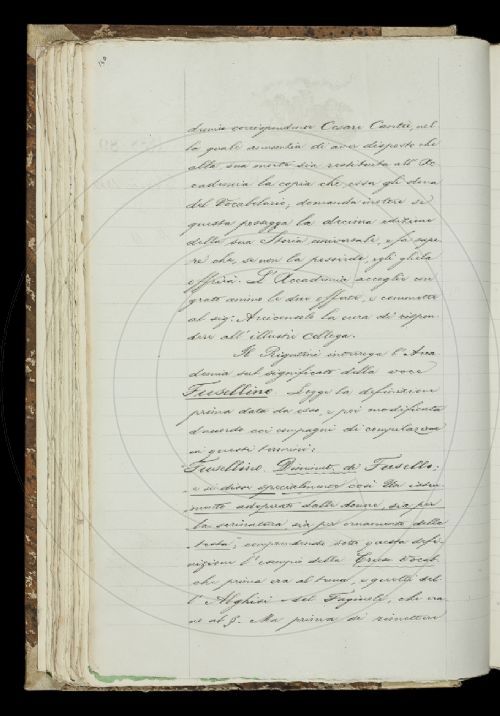 demico corrispondente Cesare Cantù, nel-
la quale annunzia di aver disposto che
alla sua morte sia restituita all'Ac-
cademia la copia che essa gli dona
del Vocabolario; domanda inoltre se
questa possegga la decima edizione
della sua Storia universale, e fa sape-
re che, se non la possiede, egli gliela
offrirà. L'Accademia accoglie con
grato animo le due offerte, e commette
al sig: Arciconsolo la cura di rispon-
dere all'illustre collega.
Il Rigutini interroga l'Acca-
demia sul significato della voce
Fusellino. Legge la definizione
prima data da esso, e poi modificata
d'accordo coi compagni di compilazione
in questi termini:
Fusellino. Diminut. di Fusello;
e si disse specialmente così Un istru-
mento adoperato dalle donne, sia per
la                sia per ornamento della
testa; comprendendo sotto questa defi-
nizione l'esempio della Crusca Vocab.
che prima era al tema, e quello del-
l'Alghisi e del Fagiuoli, che era-
no al §. Ma prima di rimettere